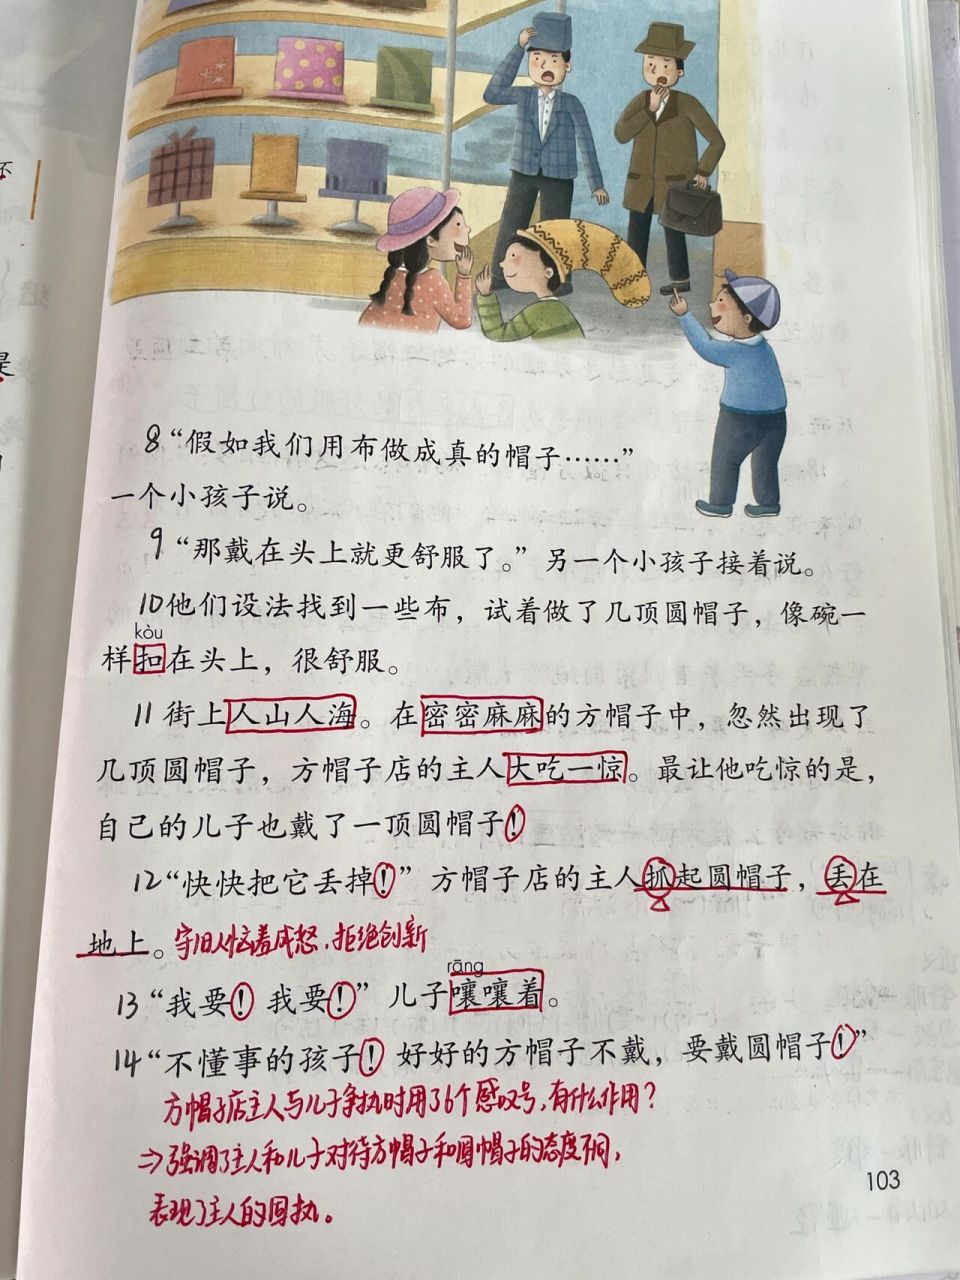 8“假如我们用布做成真的帽子……”
一个小孩子说。
9“那戴在头上就更舒服了。”另一个小孩子接着说。
10他们设法找到一些布，试着做了几顶圆帽子，像碗一
kòu
样扣在头上，很舒服。
11街上人山人海。在密密麻麻的方帽子中，忽然出现了
几顶圆帽子，方帽子店的主人大吃一惊。最让他吃惊的是，
自己的儿子也戴了一顶圆帽子！
12“快快把它丢掉！”方帽子店的主人抓起圆帽子，丢在
地上。守旧人恼羞成怒，拒绝创新
rāng
13“我要！我要！”儿子嚷嚷着。
14“不懂事的孩子！好好的方帽子不戴，要戴圆帽子！”
方帽子店主人与儿子争执时用了6个感叹号，有什么作用？
⇒强调了主人和儿子对待方帽子和圆帽子的态度不同，
表现了主人的固执。
103